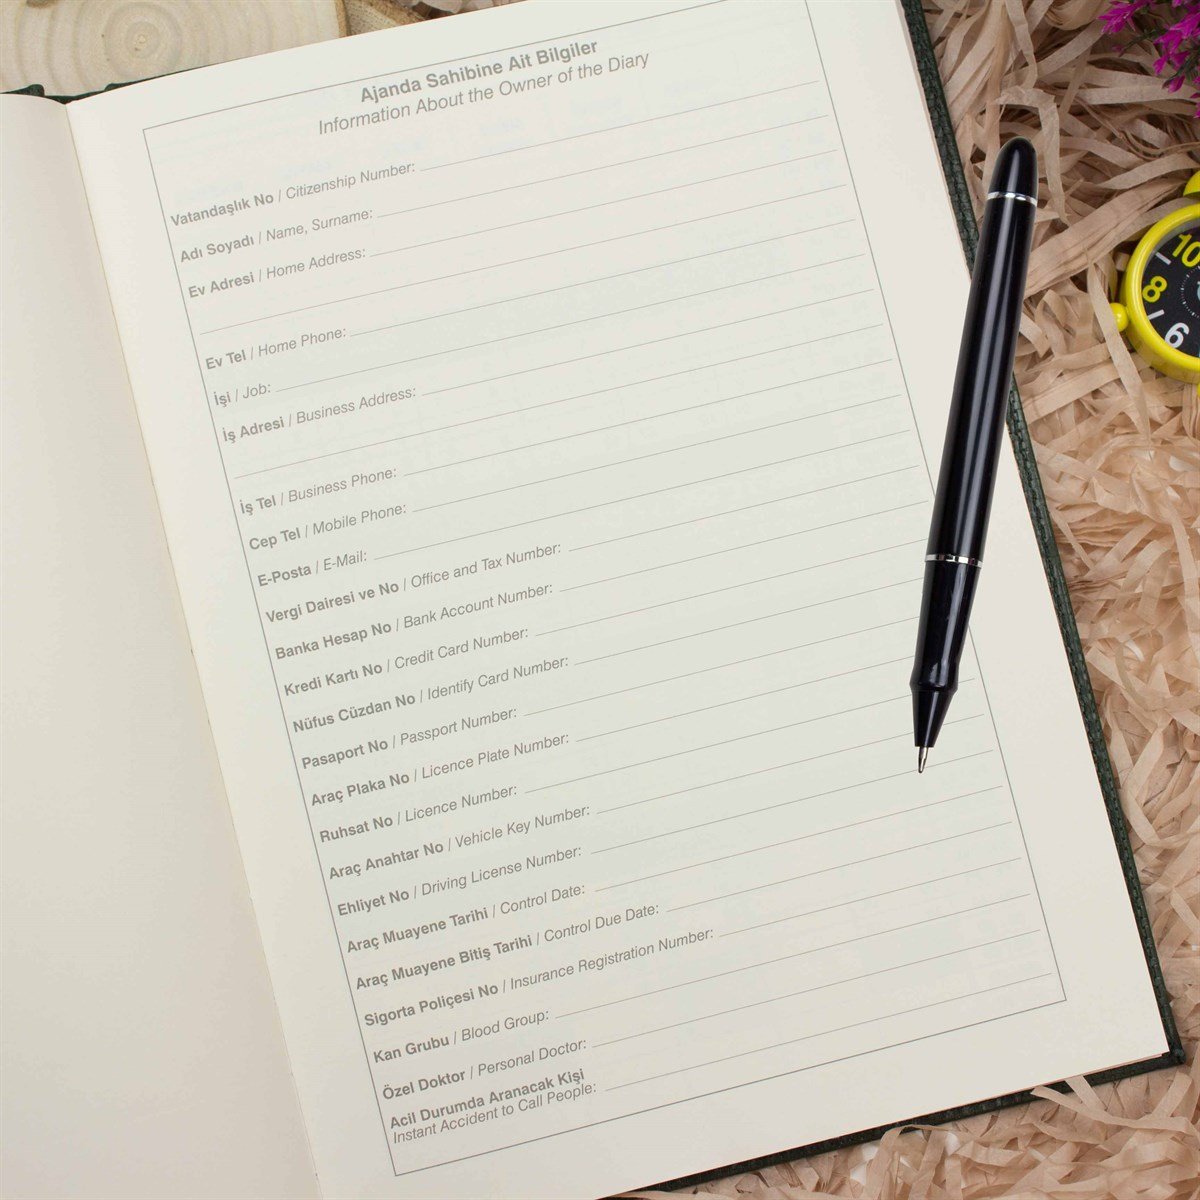 Ajanda Sahibine Ait Bilgiler
Information About the Owner of the Diary
Vatandaşlık No / Citizenship Number:
Adı Soyadı / Name, Surname:
Ev Adresi / Home Address:
Ev Tel / Home Phone:
İşi / Job:
İş Adresi / Business Address:
İş Tel / Business Phone:
Cep Tel / Mobile Phone:
E-Posta / E-Mail:
Vergi Dairesi ve No / Office and Tax Number:
Banka Hesap No / Bank Account Number:
Kredi Kartı No / Credit Card Number:
Nüfus Cüzdan No / Identify Card Number:
Pasaport No / Passport Number:
Araç Plaka No / Licence Plate Number:
Ruhsat No / Licence Number:
Araç Anahtar No / Vehicle Key Number:
Ehliyet No / Driving License Number:
Araç Muayene Tarihi / Control Date:
Araç Muayene Bitiş Tarihi / Control Due Date:
Sigorta Poliçesi No / Insurance Registration Number:
Kan Grubu / Blood Group:
Özel Doktor / Personal Doctor:
Acil Durumda Aranacak Kişi
Instant Accident to Call People:
10
8
6